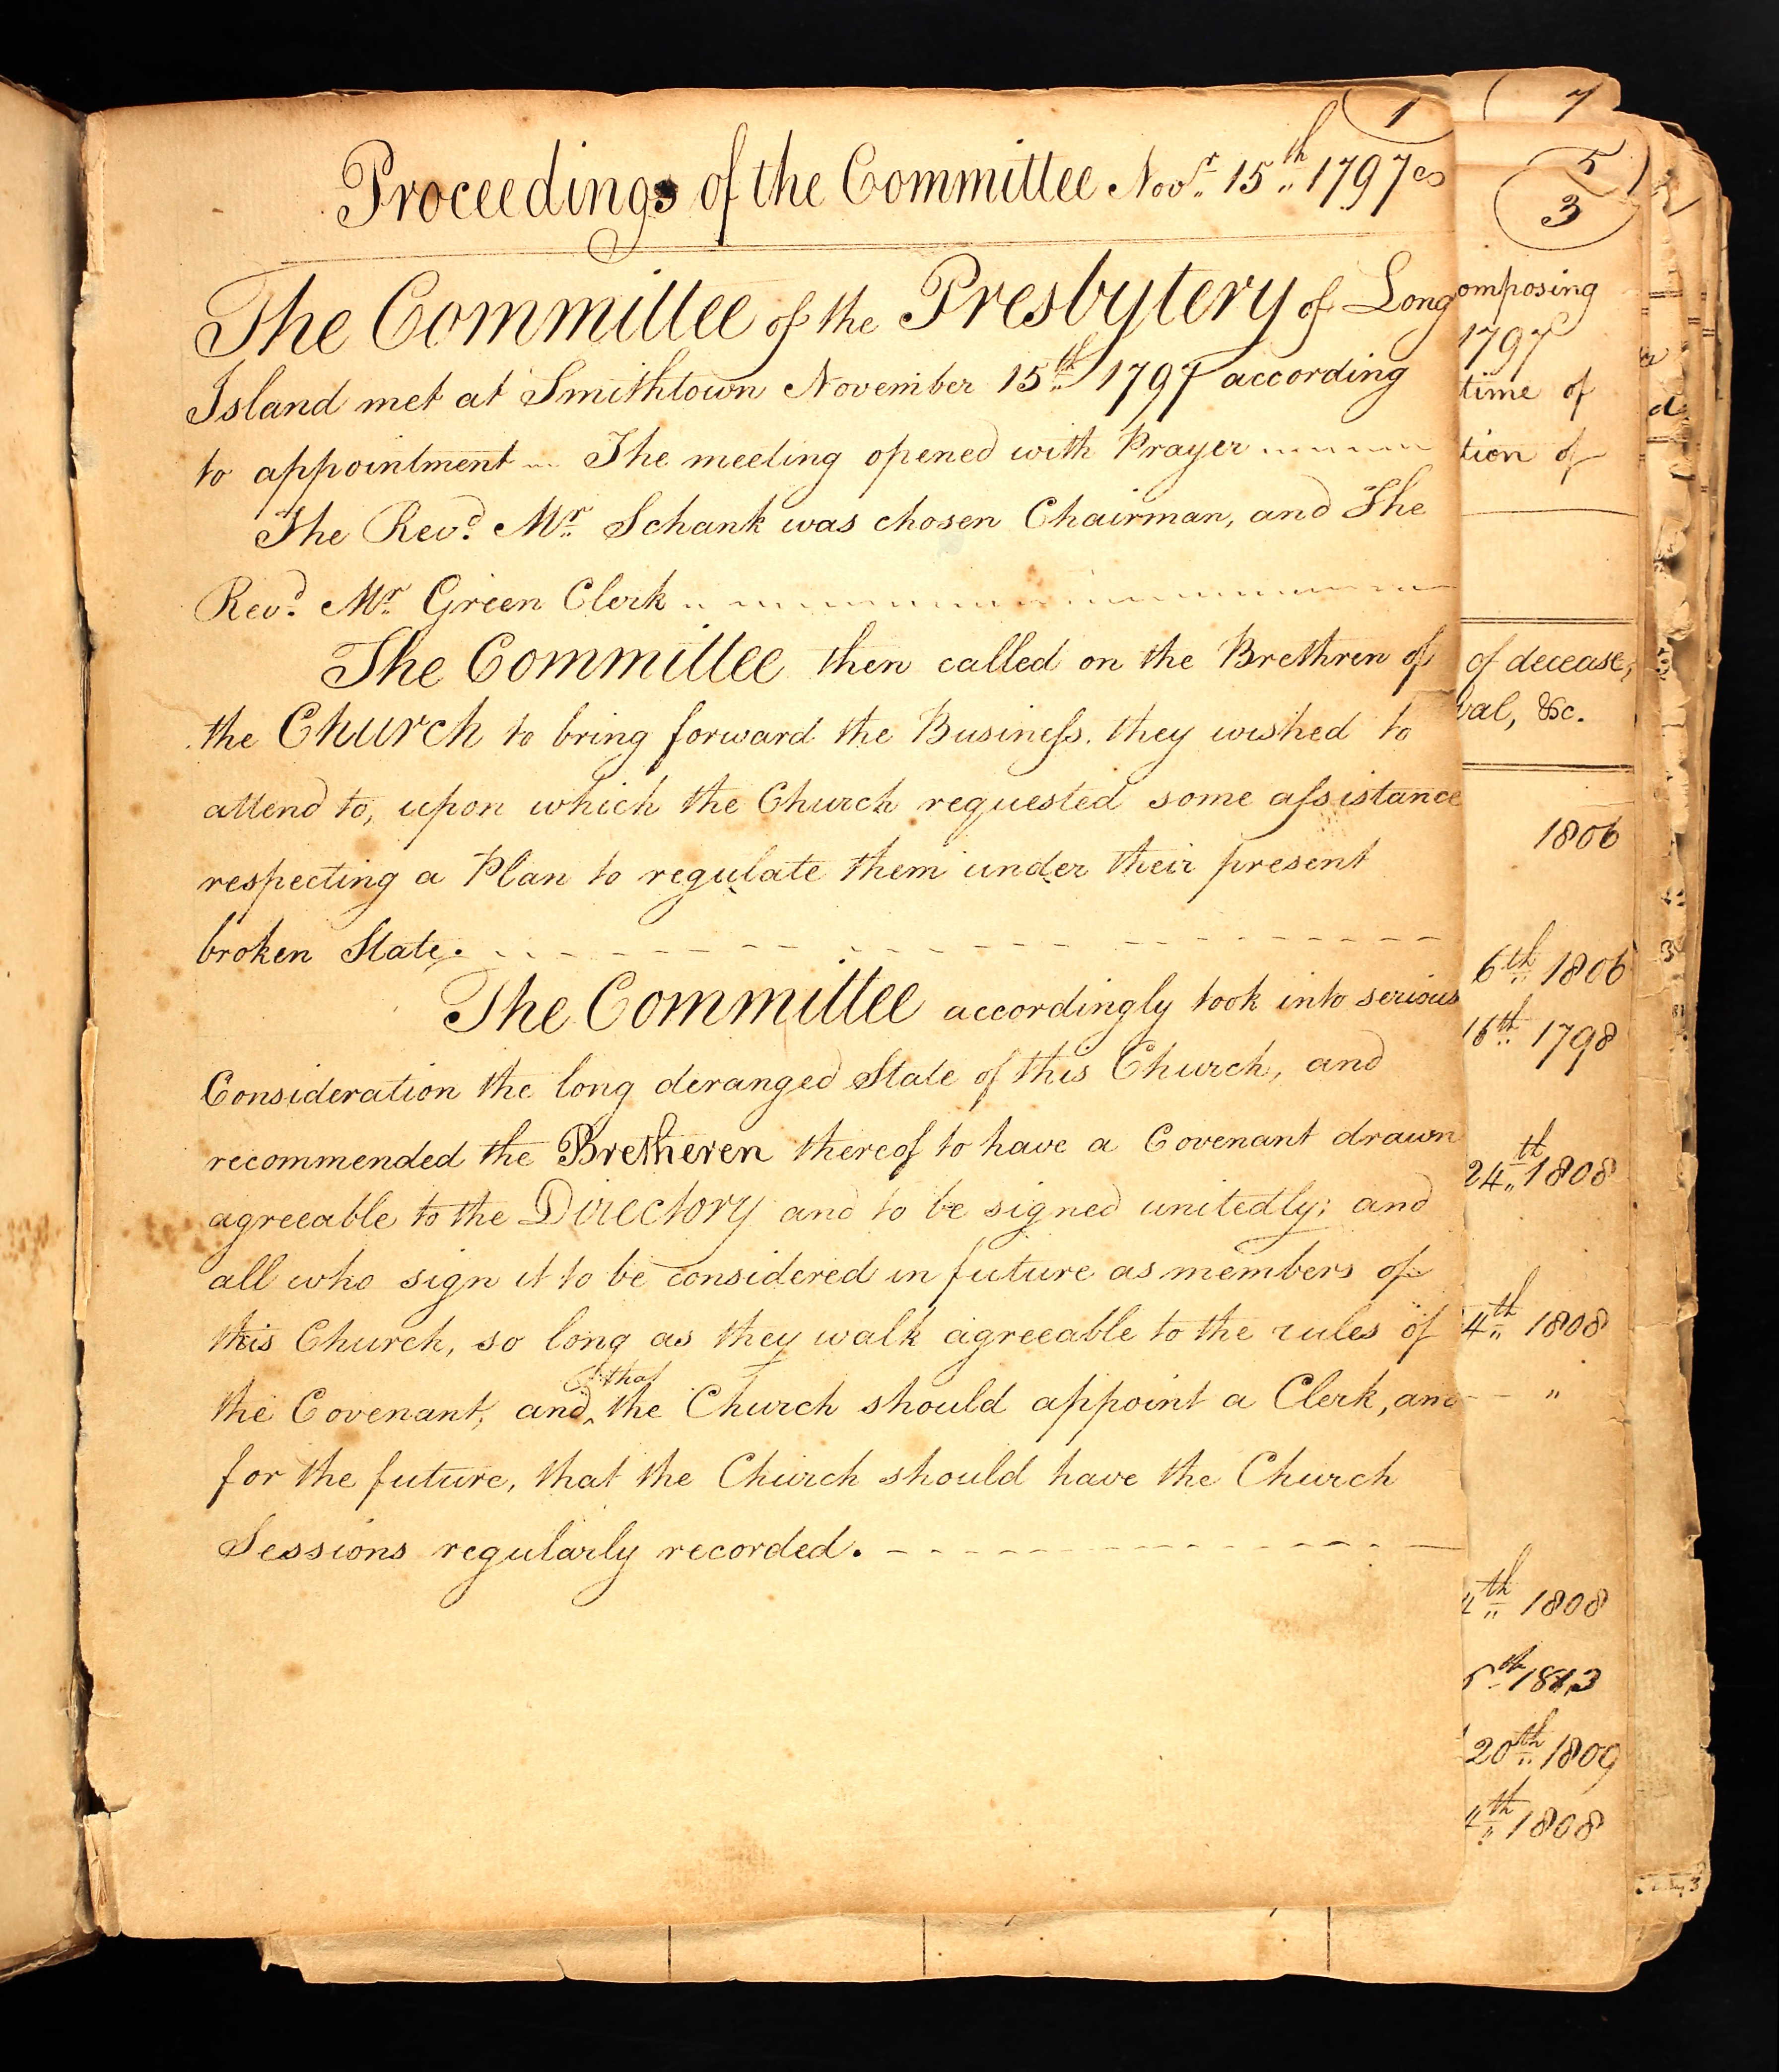 1
Proceedings of the Committee Novr. 15th 1797
The Committee of the Presbytery of Long
Island met at Smithtown November 15th 1797 according
to appointment The meeting opened with Prayer
The Revd. Mr. Schank was chosen Chairman, and The
Revd. Mr. Green Clerk
The Committee then called on the Brethren of
the Church to bring forward the Business. they wished to
attend to, upon which the Church requested some assistance
respecting a Plan to regulate them under their present
broken State.
The Committee accordingly took into serious
Consideration the long deranged State of this Church, and
recommended the Bretheren thereof to have a Covenant drawn
agreeable to the Directory and to be signed unitedly; and
all who sign it to be considered in future as members of
this Church, so long as they walk agreeable to the rules of
that
the Covenant, and ‸ the Church should appoint a Clerk, and
for the future, that the Church should have the Church
Sessions regularly recorded.
7
5
3
omposing
1797
time of
tion of
of decease,
val, &c.
1806
6th 1806
16th 1798
24th 1808
4th 1808
"
4th 1808
1813
20th 1809
4th 1808